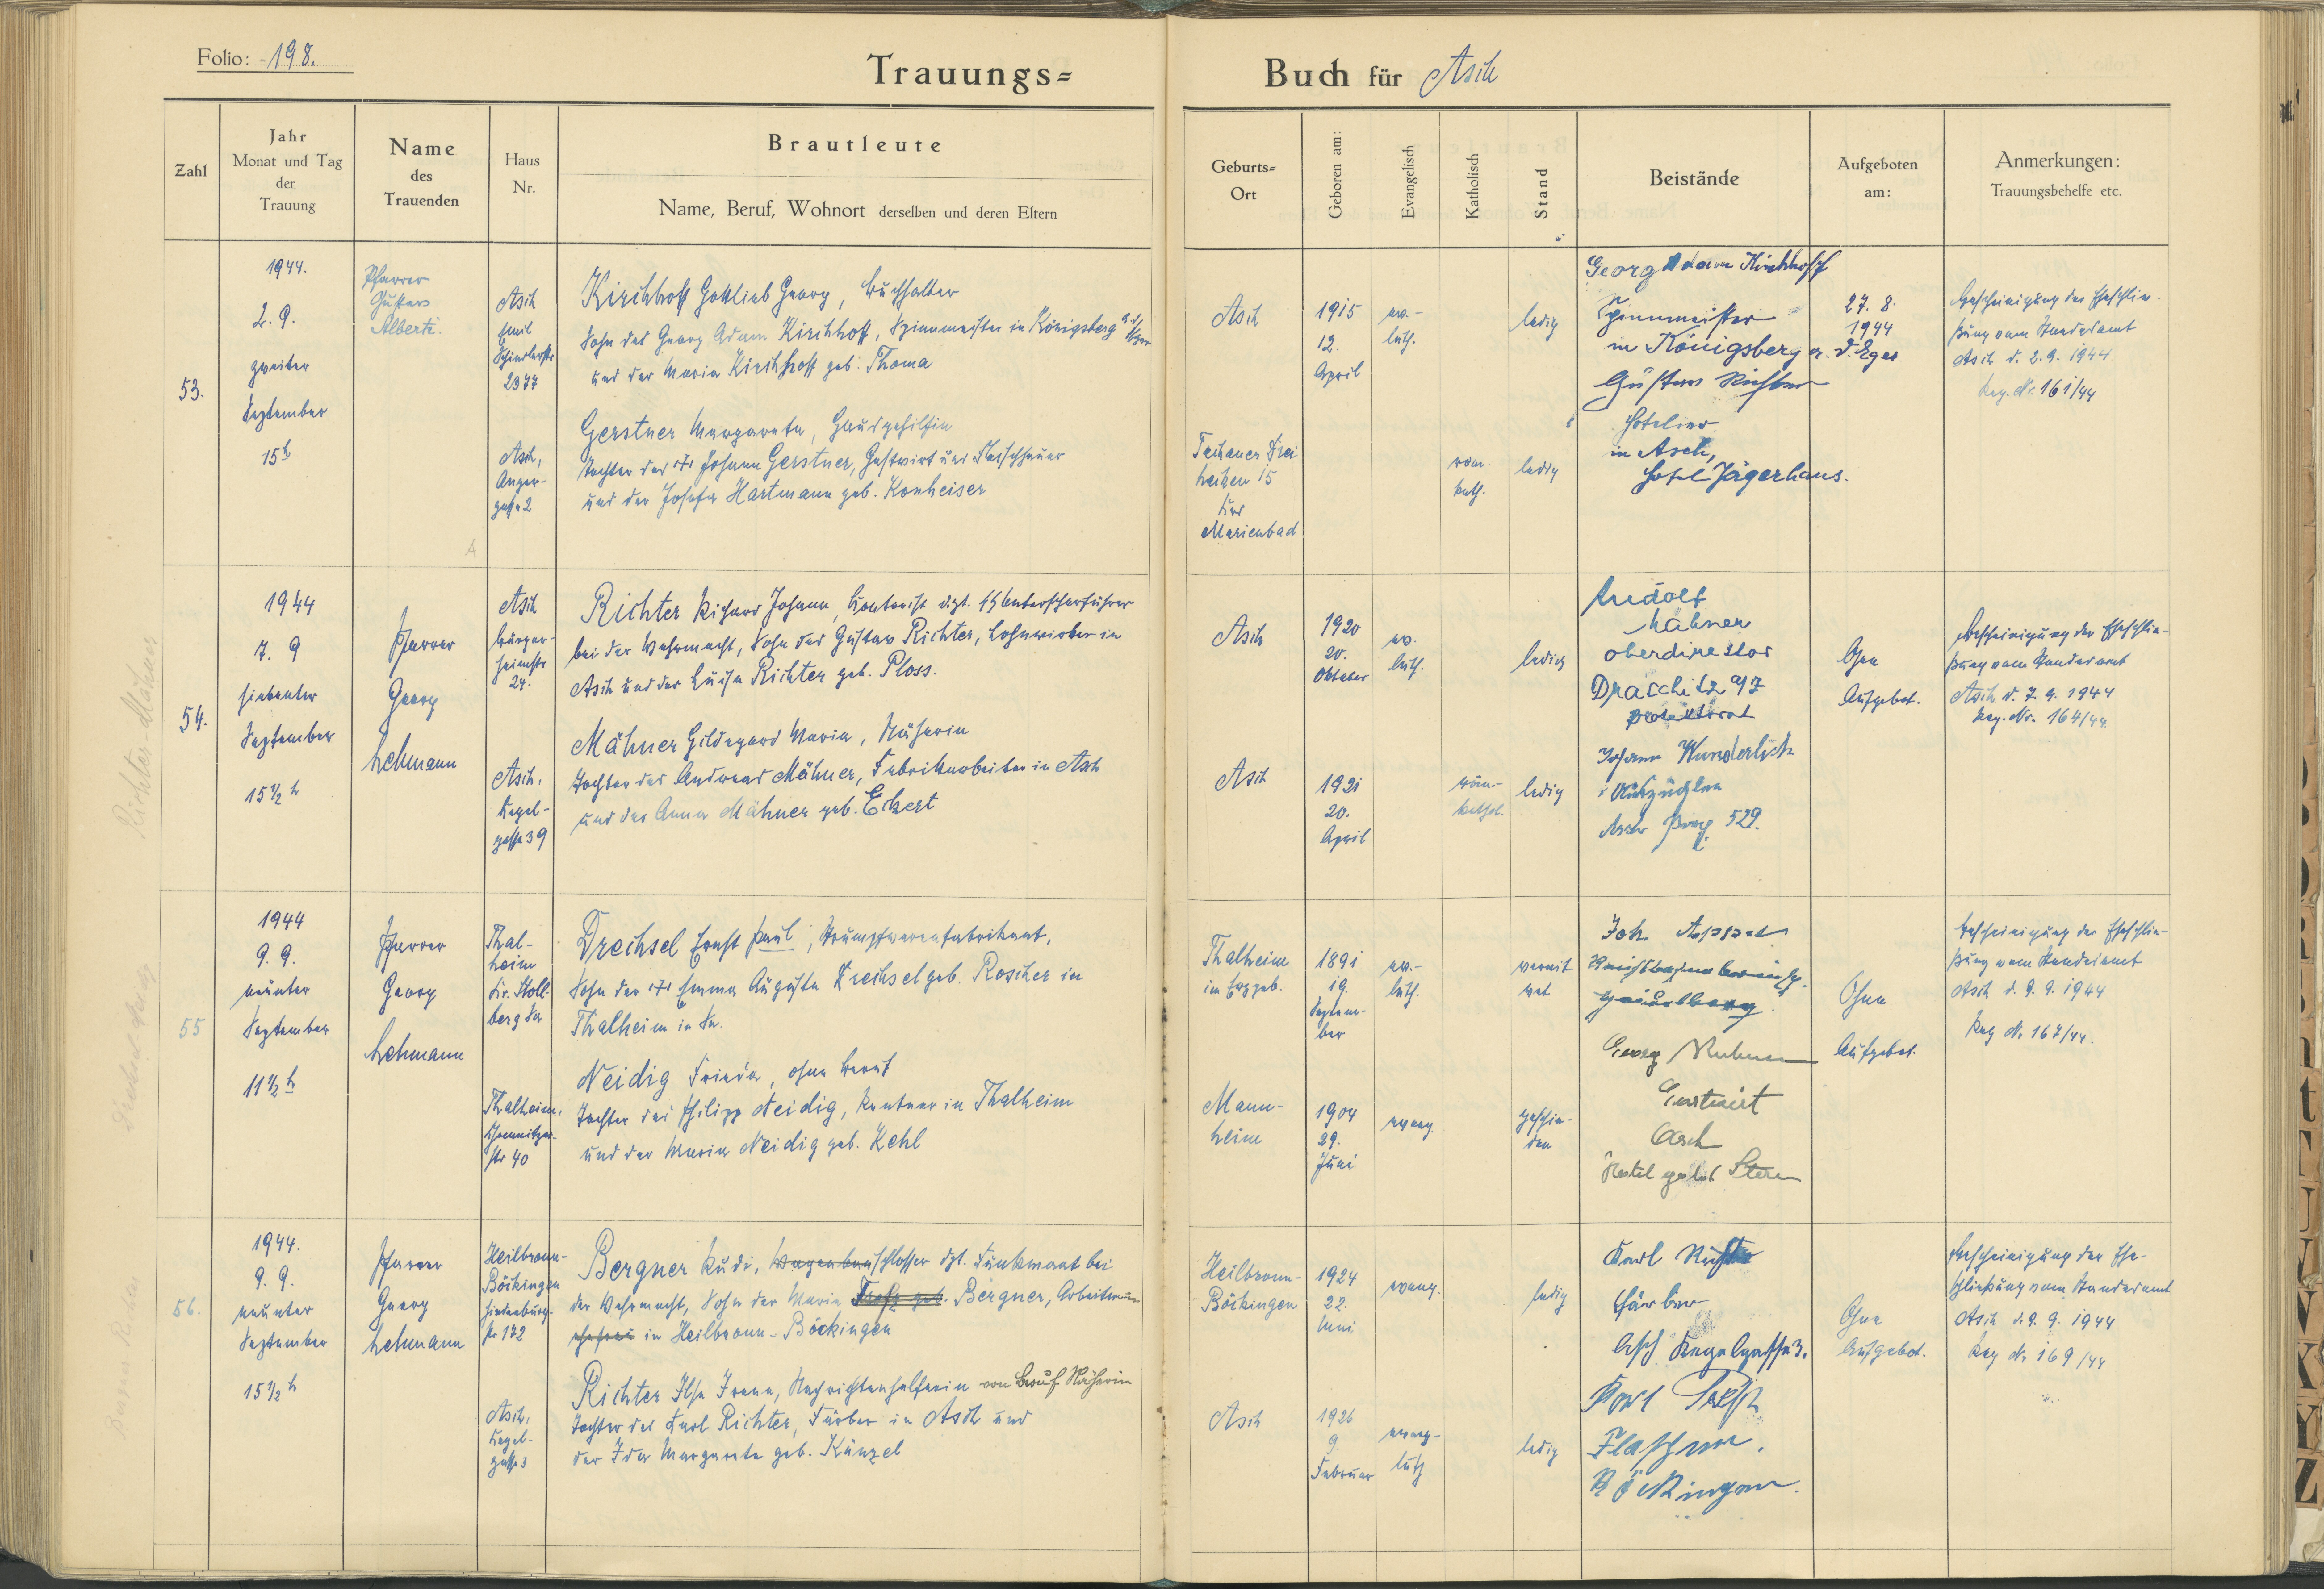 Folio: 198.
Trauungs= Buch für Asch
Zahl
Jahr
Monat und Tag
der
Trauung
Name
des
Trauenden
Haus
Nr.
Brautleute
Name, Beruf, Wohnort derselben und deren Eltern
Geburts=
Ort
Geboren am:
Evangelisch
Katholisch
Stand
Beistände
Aufgeboten
am:
Anmerkungen:
Trauungsbehelfe etc.
53.
1944.
2. 9.
zweiter
September
15 h
Pfarrer
Gustav
Alberti.
Asch
Emil
Schindlerstr
2377
Kirchhoff Gottlieb Georg, Buchhalter
Sohn des Georg Adam Kirchhoff, Spinnmeister in Königsberg a.d. Eger
und der Maria Kirchhoff geb. Thoma
Asch,
Anger-
gasse 2
Gerstner Margareta, Hausgehilfin
Tochter des Johann Gerstner, Gastwirt und Fleischhauer
und der Josefa Hartmann geb. Konheiser
Asch
1915
12.
April
ev.-
luth.
ledig
Tachauer Drei
hacken 15
Marienbad
röm.
kath.
ledig
Georg Adam Kirchhoff
Spinnmeister
in Königsberg a. d. Eger
Gustav Richter
Hotelier
in Asch,
Hotel Jägerhaus.
27. 8.
1944
Bescheinigung der Eheschlie-
ßung vom Standesamt
Asch v. 2. 9. 1944
Reg. Nr. 161/44
54.
1944
7. 9
siebenter
September
15 1/2 h
Pfarrer
Georg
Lehmann
Asch
Bürger-
heimstr
24.
Richter Richard Johann, Kontorist dzt. SS Unterscharführer
bei der Wehrmacht, Sohn des Gustav Richter, Lohnwirker in
Asch und der Luise Richter geb. Ploss.
Asch,
Kegel-
gasse 39
Mähner Hildegard Maria, Näherin
Tochter des Andreas Mähner, Fabrikarbeiter in Asch
und der Anna Mähner geb. Eckert
Asch
1920
20.
Oktober
ev.
luth.
ledig
Asch
1921
20.
April
röm.-
kathol.
ledig
Rudolf
Mähner
oberdirektor
Draschitz 97
protektorat
Johann Wunderlich
Asch 529.
Ohne
Aufgebot.
Bescheinigung der Eheschlie-
ßung vom Standesamt
Asch v. 7. 9. 1944
Reg. Nr. 164/44.
Richter-Mähner
55
1944
9. 9.
neunter
September
11 1/2 h
Pfarrer
Georg
Lehmann
Thal-
heim
Kr. Stoll-
berg Sa
Drechsel Ernst Paul, Strumpfwarenfabrikant,
Sohn der Emma Augusta Drechsel geb. Roscher in
Thalheim in Sa.
Thalheim,
Chemnitzer-
str 40
Neidig Frieda, ohne Beruf
Tochter des Philipp Neidig, Rentner in Thalheim
und der Maria Neidig geb. Kehl
Thalheim
im Erzgeb.
1891
19.
Septem-
ber
ev.-
luth.
verwit
wet
Mann-
heim
1904
29.
Juni
evang.
geschie-
den
Joh.
Georg
Gastwirt
Asch
Hotel gold Stern
Ohne
Aufgebot.
Bescheinigung der Eheschlie-
ßung vom Standesamt
Asch v. 9. 9. 1944
Reg Nr 167/44.
56.
1944.
9. 9.
neunter
September
15 1/2 h
Pfarrer
Georg
Lehmann
Heilbronn-
Böckingen
Hindenburg-
str 172
Bergner Rudi, Wagenbauschlosser dzt. Funkmaat bei
der Wehrmacht, Sohn der Maria Trefz geb. Bergner, Arbeiterin
ehefrau in Heilbronn-Böckingen
Asch,
Kegel-
gasse 3
Richter Ilse Irene, Nachrichtenhelferin von Beruf Näherin
Tochter des Karl Richter, Färber in Asch und
der Ida Margarete geb. Künzel
Heilbronn-
Böckingen
1924
22.
Juni
evang.
ledig
Asch
1926
9.
Februar
evang-
luth
ledig
Karl Richter
Färber
Asch Kegelgasse 3.
Karl Trefz
Flaschner.
Böckingen.
Ohne
Aufgebot.
Bescheinigung der Ehe-
schließung vom Standesamt
Asch v. 9. 9. 1944
Reg Nr 169/44